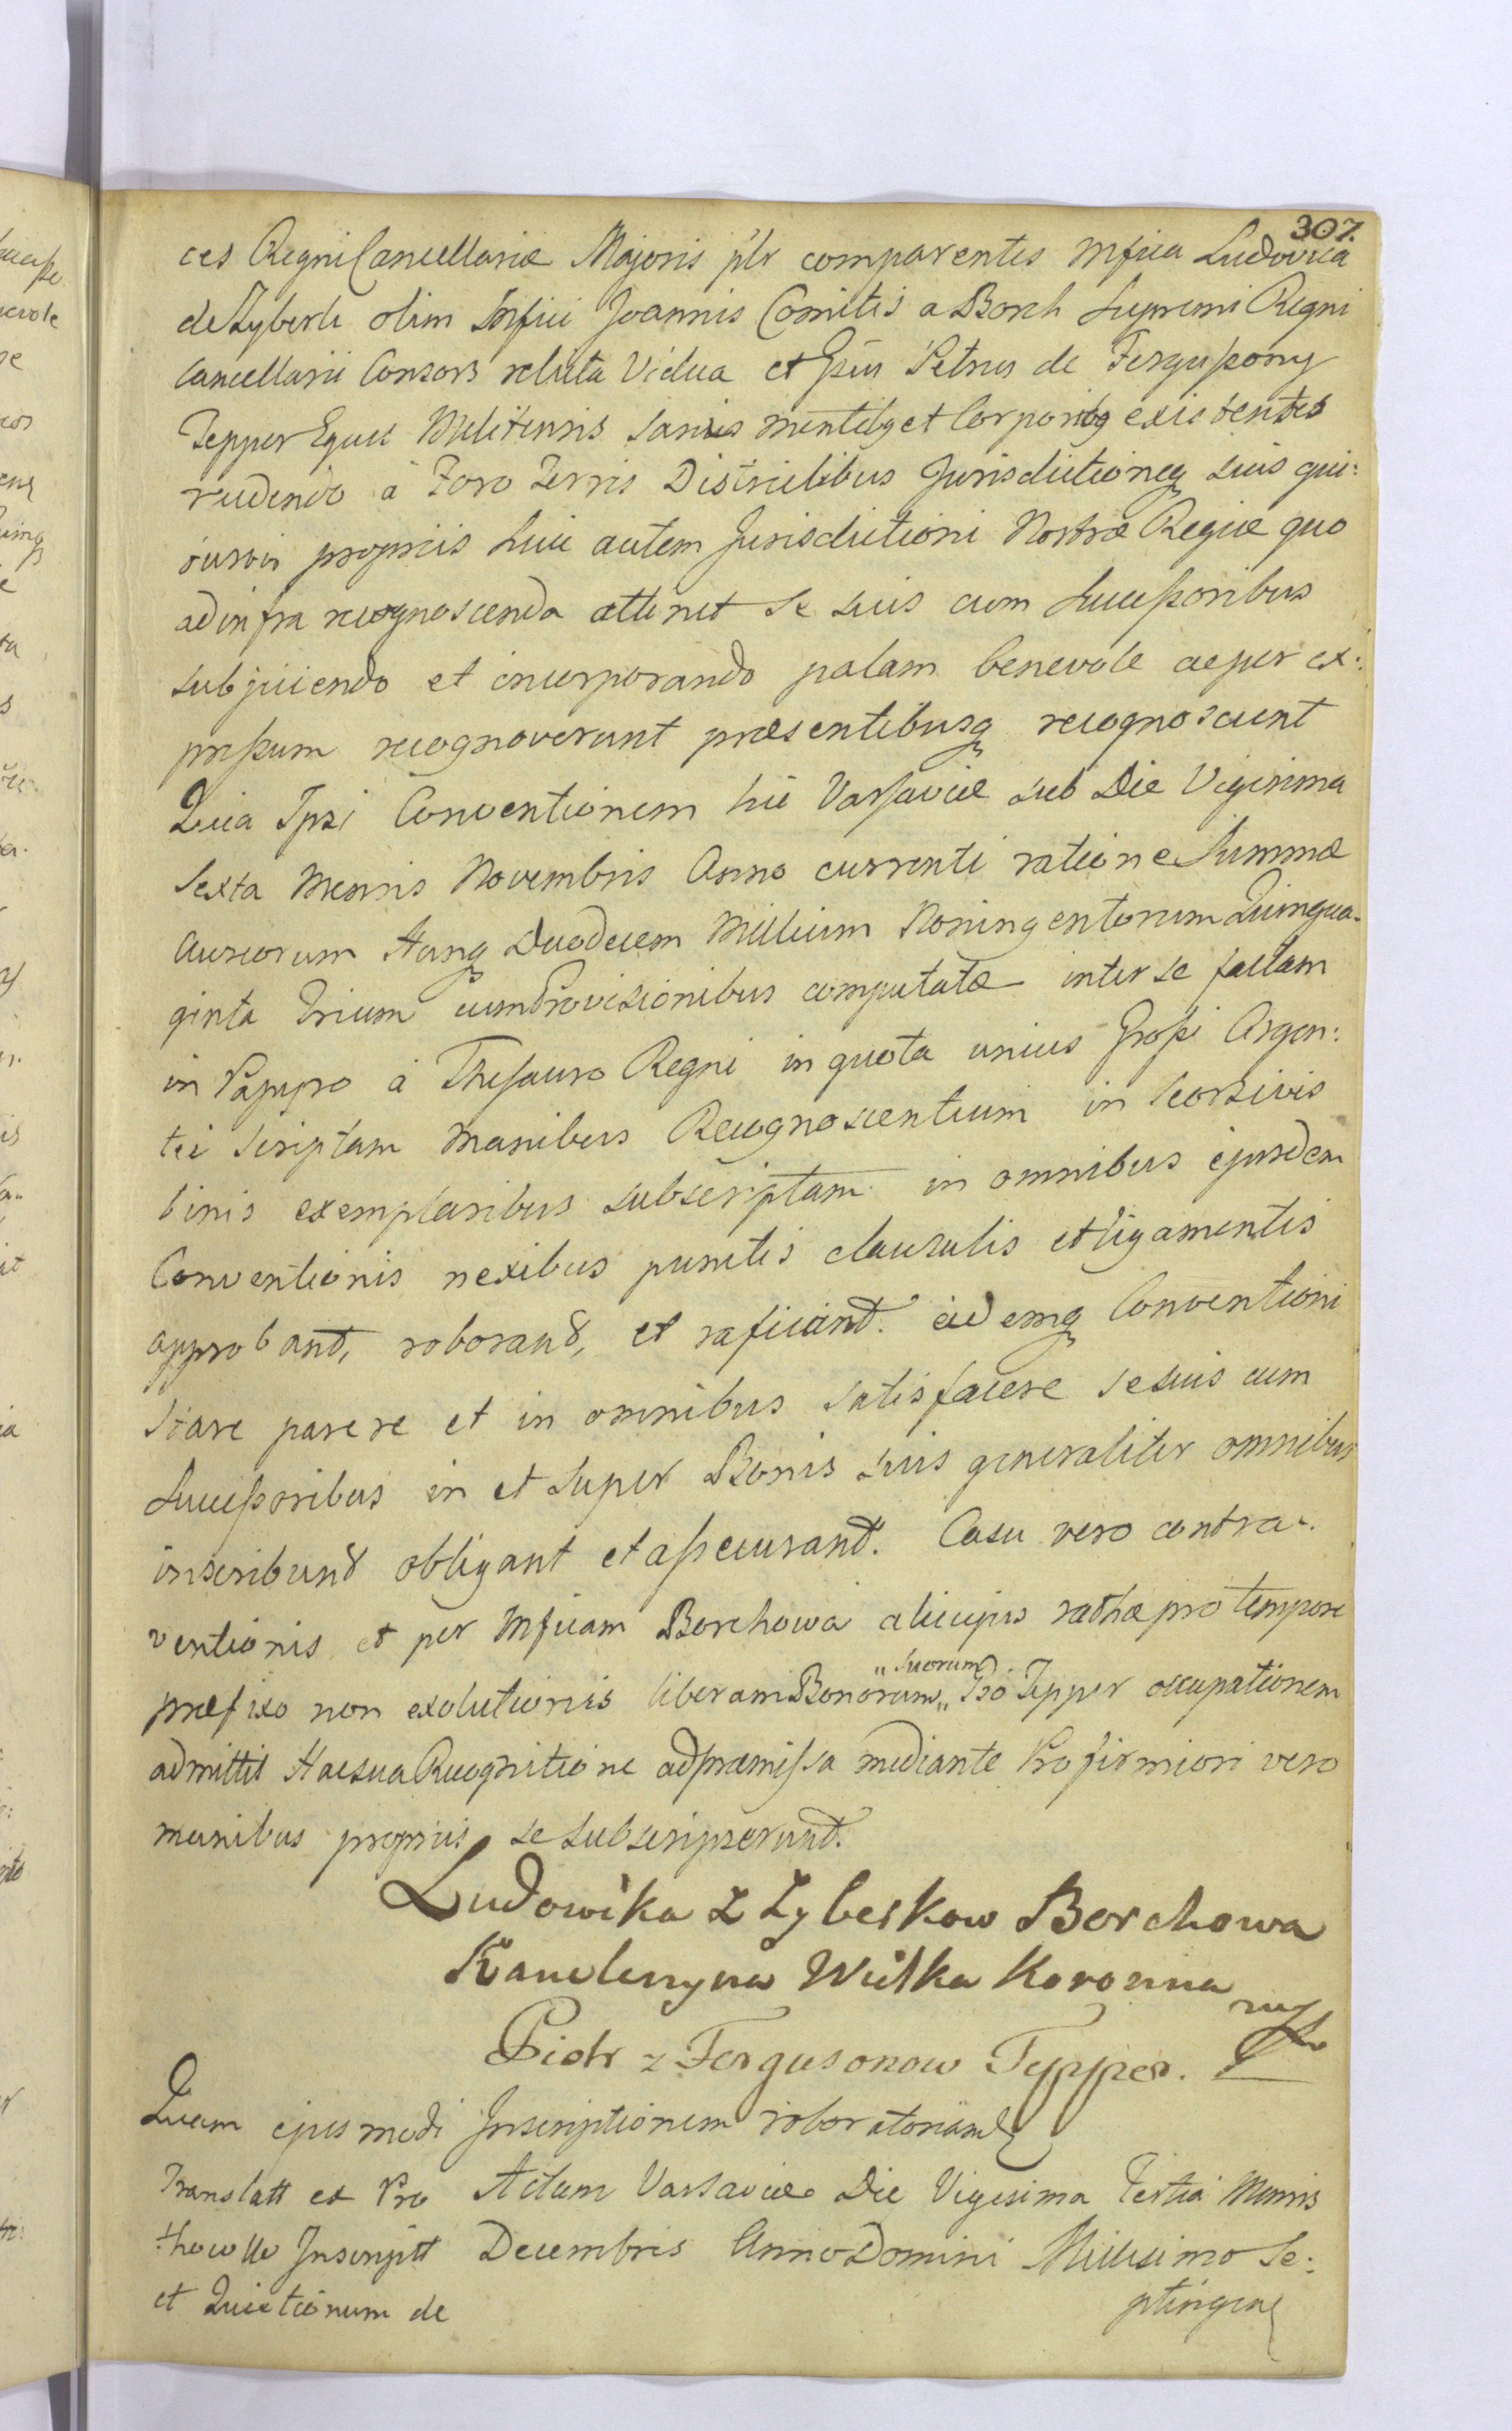 307.
ces Regni Cancellariæ Majoris plr comparentes Mfica Ludovica
de Zyberk olim Mfici Joannis Comitis a Borch Supremi Regni
Cancellarii Consors relicta Vidua et Gsus Petrus de Fergussony
Tepper Eques Melitensis sanis mentibq et Corporibq existentes
recedendo a Foro Terris Districtibus Jurisdictioneq suis qui:
busvis propriis huic autem Jurisdictioni Nostræ Regiæ quo
ad infra recognoscenda attinet se suis cum Successoribus
subjiciendo et incorporando palam benevole ac per ex:
pressum recognoverunt præsentibusq recognoscunt
Quia Ipsi Conventionem hic Varsaviæ sub Die Vigesima
Sexta Mensis Novembris Anno currenti ratione Summæ
Aureorum Hung Duodecem Millium Noningentorum Quinqua-
ginta Trium cum Provisionibus computatæ inter se factam
in Papyro a Thesauro Regni in quota unius Grossi Argen:
tei scriptam Manibus Recognoscentium in seorsivis
binis exemplaribus subscriptam in omnibus ejusdem
Conventionis nexibus punctis clausulis et ligamentis
approbant, roborant, et raficiant. eidemq Conventioni
stare parere et in omnibus satisfacere se suis cum
Successoribus in et super Bonis suis generaliter omnibus
inscribunt obligant et assecurant. Casu vero contra-
ventionis et per Mficam Borchowa alicujus rathæ pro tempore
præfixo non exolutionis liberam Bonorum „Suorum„ Gso Tepper occupationem
admittit Hac sua Recognitione ad præmissa mediante Pro firmiori vero
manibus propriis se subscripserunt.
Ludowika z Zyberkow Borchowa
Kanclerzyna Wielka Koronna
Piotr z Fergusonow Tepper.
Quam ejusmodi Inscriptionem roboratoriam
Translatt ex Pro Actum Varsaviæ Die Vigesima Tertia Mensis
thocollo Inscriptt Decembris Anno Domini Millesimo Se:
et Quietionum de ptingen